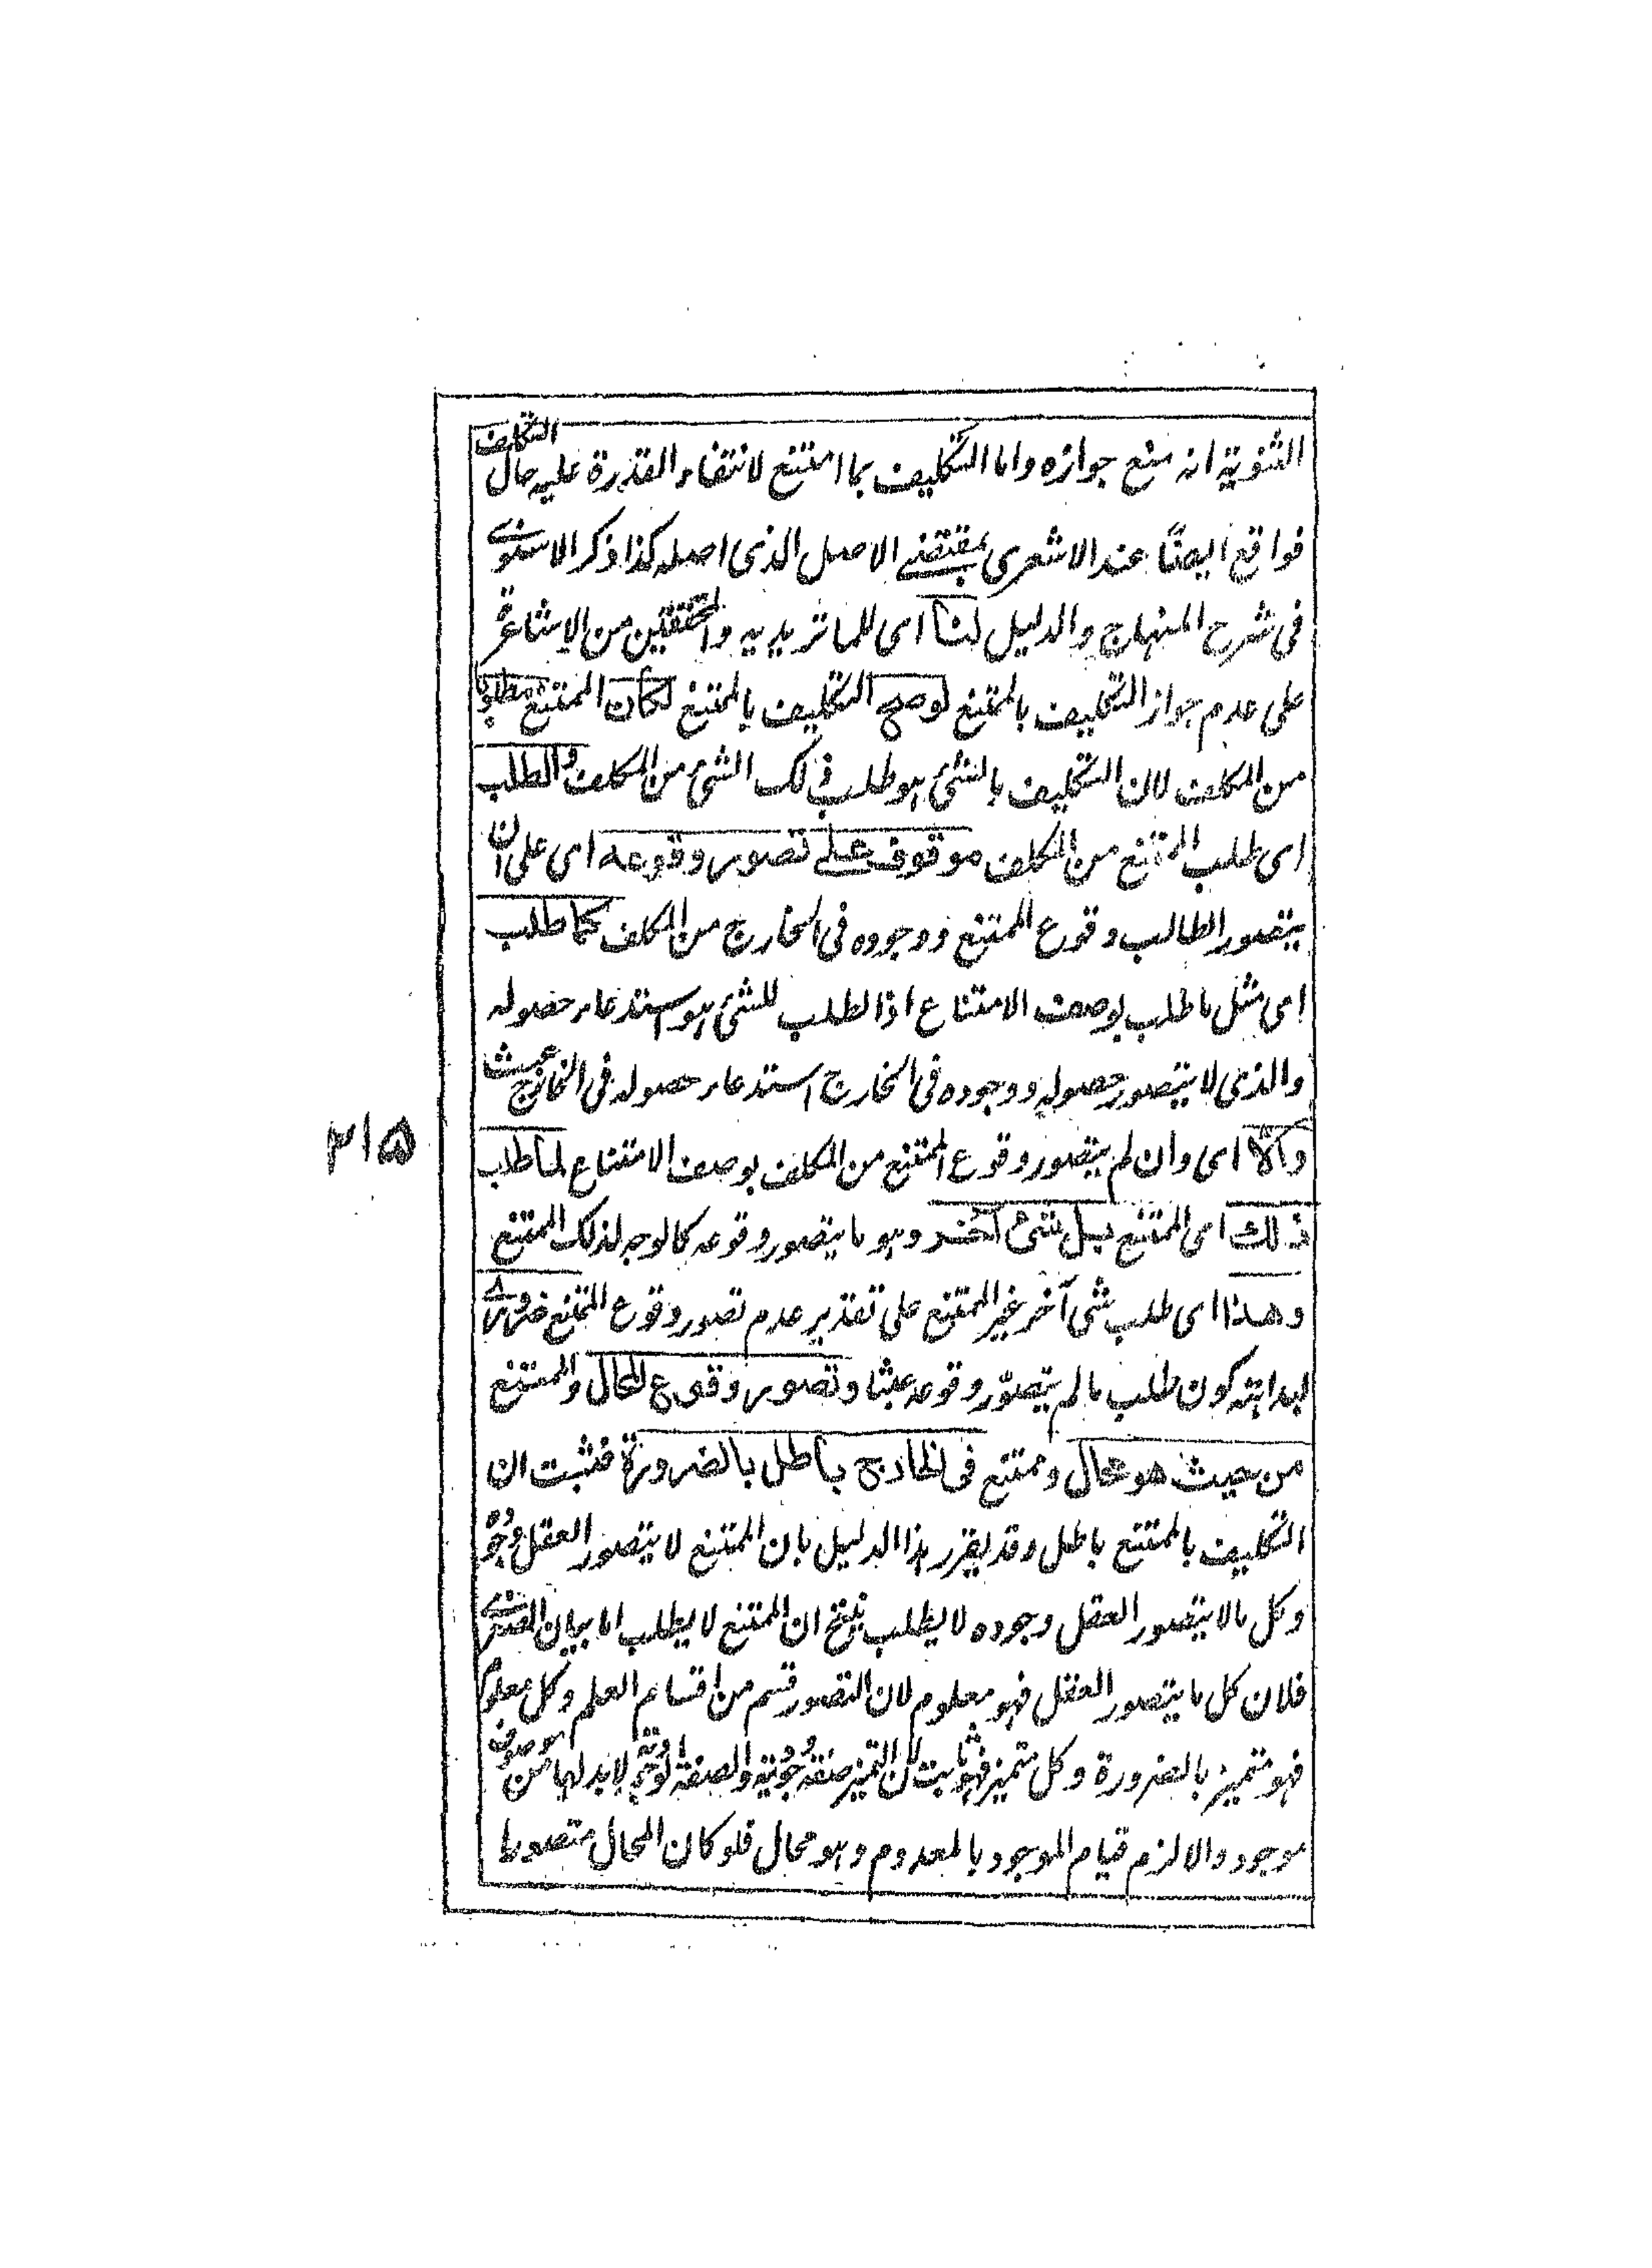 الثنوية انه منع جوازه واما التكليف بما امتنع لانتفاء القدرة عليه حال التكليف
فواقع ايضًا عند الاشعرى بمقتضے الاصل الذى اصله كذا ذكر الاسنوے
فى شرح المنهاج والدليل لنا اى للماتريديه والمحققين من الاشاعرة
على عدم جواز التكليف بالممتنع لوصح التكليف بالممتنع لكان الممتنع مطلوبا
من المكلف لان التكليف بالشئ هو طلب ذلك الشئ من المكلف والطلب
اى طلب الممتنع من المكلف موقوف علے تصور وقوعه اى على ان
يتصور الطالب وقوع الممتنع ووجوده فى الخارج من المكلف كما طلب
اى مثل ما طلب بوصف الامتناع اذ الطلب للشئ هو استدعاء حصوله
والذى لا يتصور حصوله ووجوده فى الخارج استدعاء حصوله فى الخارج عبث
والا اى وان لم يتصور وقوع الممتنع من المكلف بوصف الامتناع لما طلب
٢١٥
ذلك اى الممتنع بل شئ آخر وهو ما يتصور وقوعه كالوجه لذلك الممتنع
وهذا اى طلب شئ آخر غير الممتنع على تقدير عدم تصور وقوع الممتنع ضرورے
لبداهته كون طلب ما لم يتصوّر وقوعه عبثا وتصور وقوع المحال والممتنع
من حيث هو محال وممتنع فى الخارج باطل بالضرورة فثبت ان
التكليف بالممتنع باطل وقد يقرر هذا الدليل بان الممتنع لا يتصور العقل وجوده
وكل مالا يتصور العقل وجوده لا يطلب ينتج ان الممتنع لا يطلب اما بيان الصغرے
فلان كل ما يتصور العقل فهو معلوم لان التصور قسم من اقسام العلم وكل معلوم
فهو متميز بالضرورة وكل متميز فهو ثابت لان التميز صفة وجودية والصفة الوجودية لا بد لها من موصوف
موجود والا لزم قيام الموجود بالمعدوم وهو محال فلو كان المحال متصورا